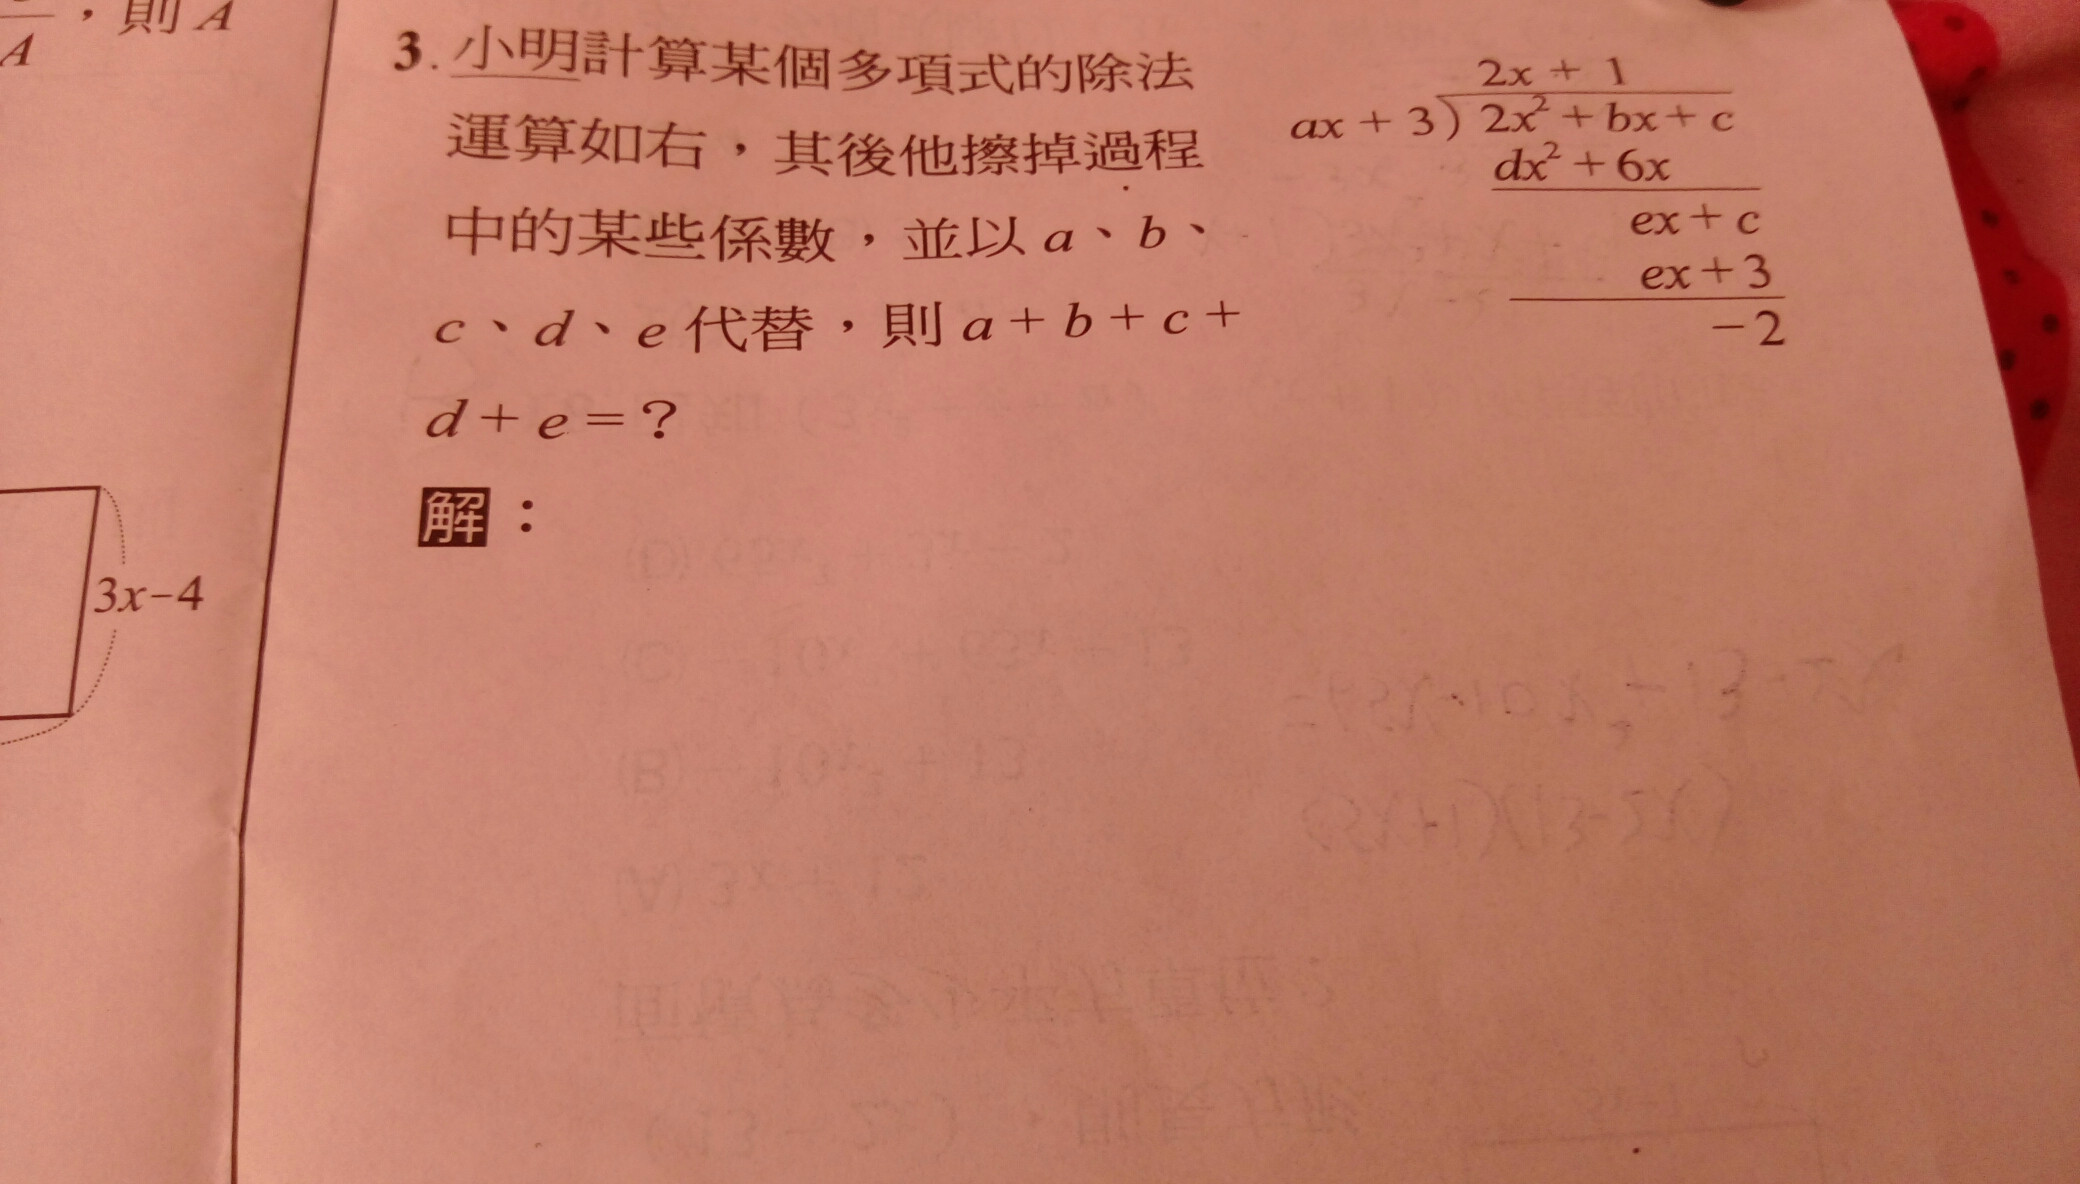 A
，則 A
3. 小明計算某個多項式的除法
運算如右，其後他擦掉過程
中的某些係數，並以 a、b、
c、d、e 代替，則 a + b + c +
d + e = ?
2x + 1
ax + 3) 2x² + bx + c
dx² + 6x
ex + c
ex + 3
-2
解：
3x-4